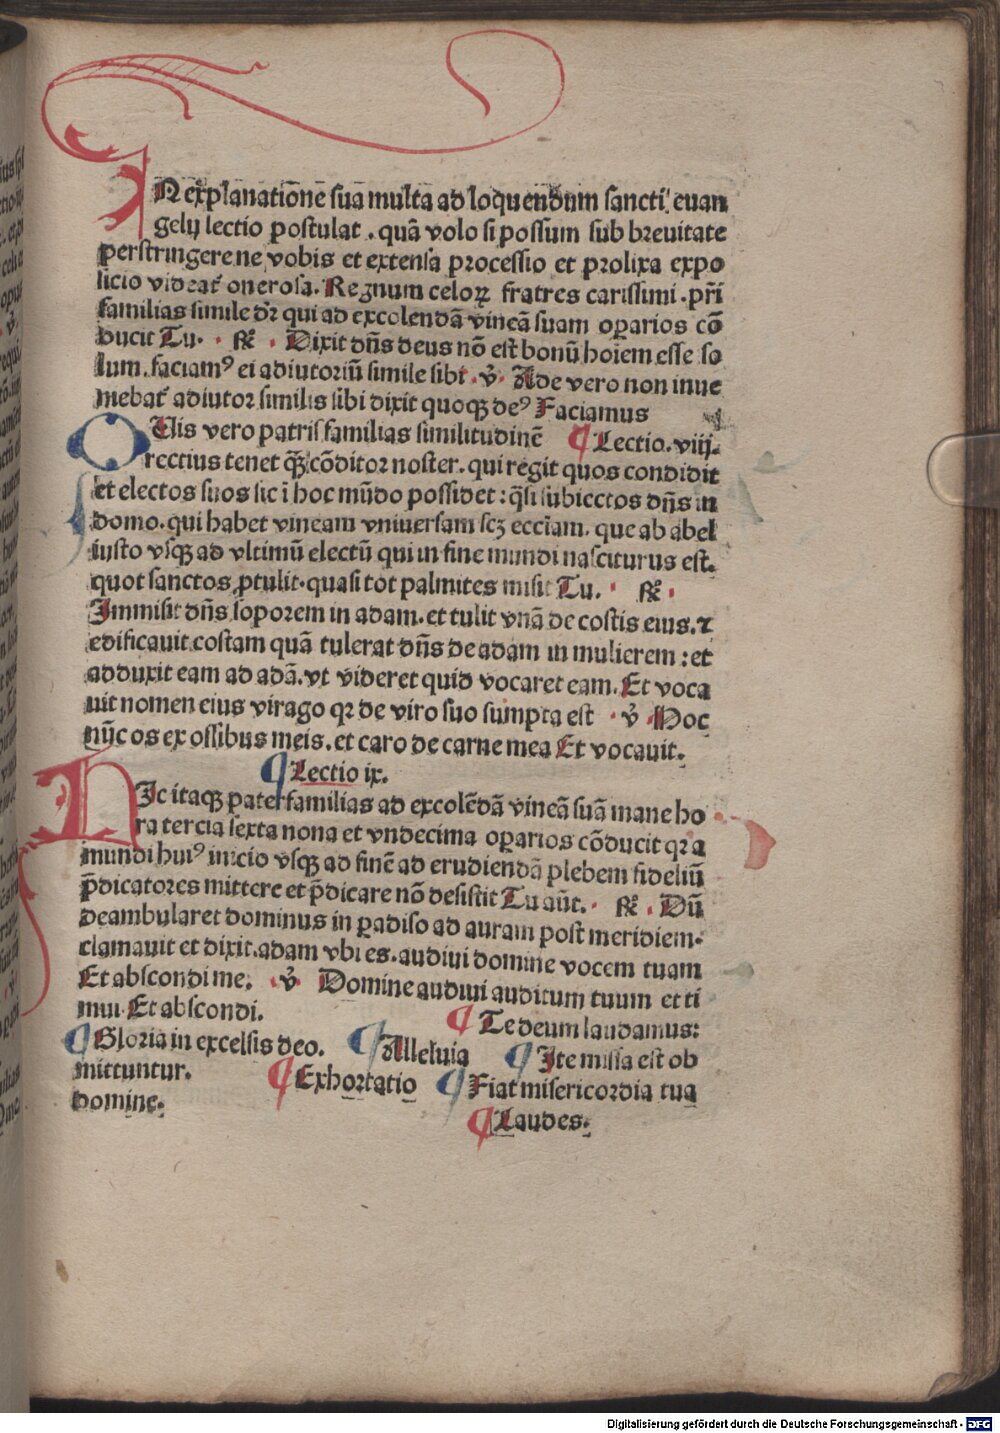 IN explanatione suā multa ad loquendum sancti euan
gelij lectio postulat . quā volo si possum sub breuitate
perstringere ne vobis et extensa processio et prolixa expo
sicio videat᷑ onerosa. Regnum celoꝝ fratres carissimi . pr̄i
familias simile dr̄ qui ad excolendā vineā suam operarios cō
ducit Tu. ℟ . Dixit dn̄s deus nō est bonū hoīem esse so
lum. faciamꝰ ei adiutoriū simile sibi . ℣ . Ade vero non inue
niebat᷑ adiutor similis sibi dixit quoqꝫ deꝰ Faciamus
QUis vero patrisfamilias similitudinē ¶ Lectio. viij.
rectius tenet qꝫ̄ cōditor noster. qui regit quos condidit
et electos suos sic ī hoc mūdo possidet : q̄si subiectos dn̄s in
domo. qui habet vineam vniuersam scꝫ eccl̄iam. que ab abel
iusto vsqꝫ ad vltimū electū qui in fine mundi nasciturus est.
quot sanctos ꝓtulit. quasi tot palmites misit Tu. ℟ .
Immisit dn̄s soporem in adam. et tulit vnā de costis eius. ⁊
edificauit costam quā tulerat dn̄s de adam in mulierem : et
adduxit eam ad adā. vt videret quid vocaret eam. Et voca
uit nomen eius virago qꝛ de viro suo sumpta est . ℣ . Hoc
nūc os ex ossibus meis. et caro de carne mea Et vocauit.
¶ Lectio ix.
HIc itaqꝫ paterfamilias ad excolēdā vineā suā mane ho
ra tercia sexta nona et vndecima operarios cōducit qꝛ a
mundi huiꝰ inicio vsqꝫ ad finē ad erudiendā plebem fideliū
p̄dicatores mittere et p̄dicare nō desistit Tu aūt. ℟ . Dū
deambularet dominus in paradiso ad auram post meridiem.
clamauit et dixit. adam vbi es. audiui domine vocem tuam
Et abscondi me. . ℣ . Domine audiui auditum tuum et ti
mui. Et abscondi. ¶ Te deum laudamus:
¶ Gloria in excelsis deo. ¶ Alleluia ¶ Ite missa est ob
mittuntur. ¶ Exhortatio ¶ Fiat misericordia tua
domine. ¶ Laudes.
Digitalisierung gefördert durch die Deutsche Forschungsgemeinschaft - DFG